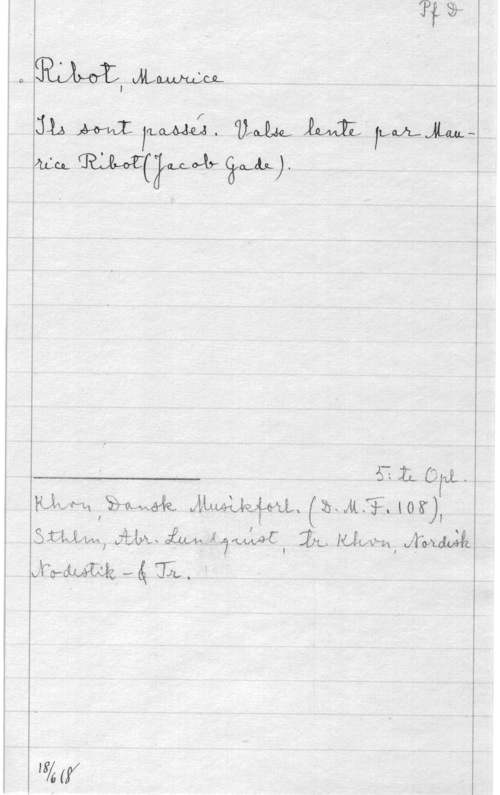 Pf D
Ribot, Maurice
Ils sont passés. Valse lente par Mau-
rice Ribot (Jacob Gade).
5:te Opl.
Khvn, Dansk Musikforl. (D.M.F. 108),
Sthlm, Abr. Lundquist, Tr. Khvn, Nordisk
Nodestik- & Tr.
18/6 18